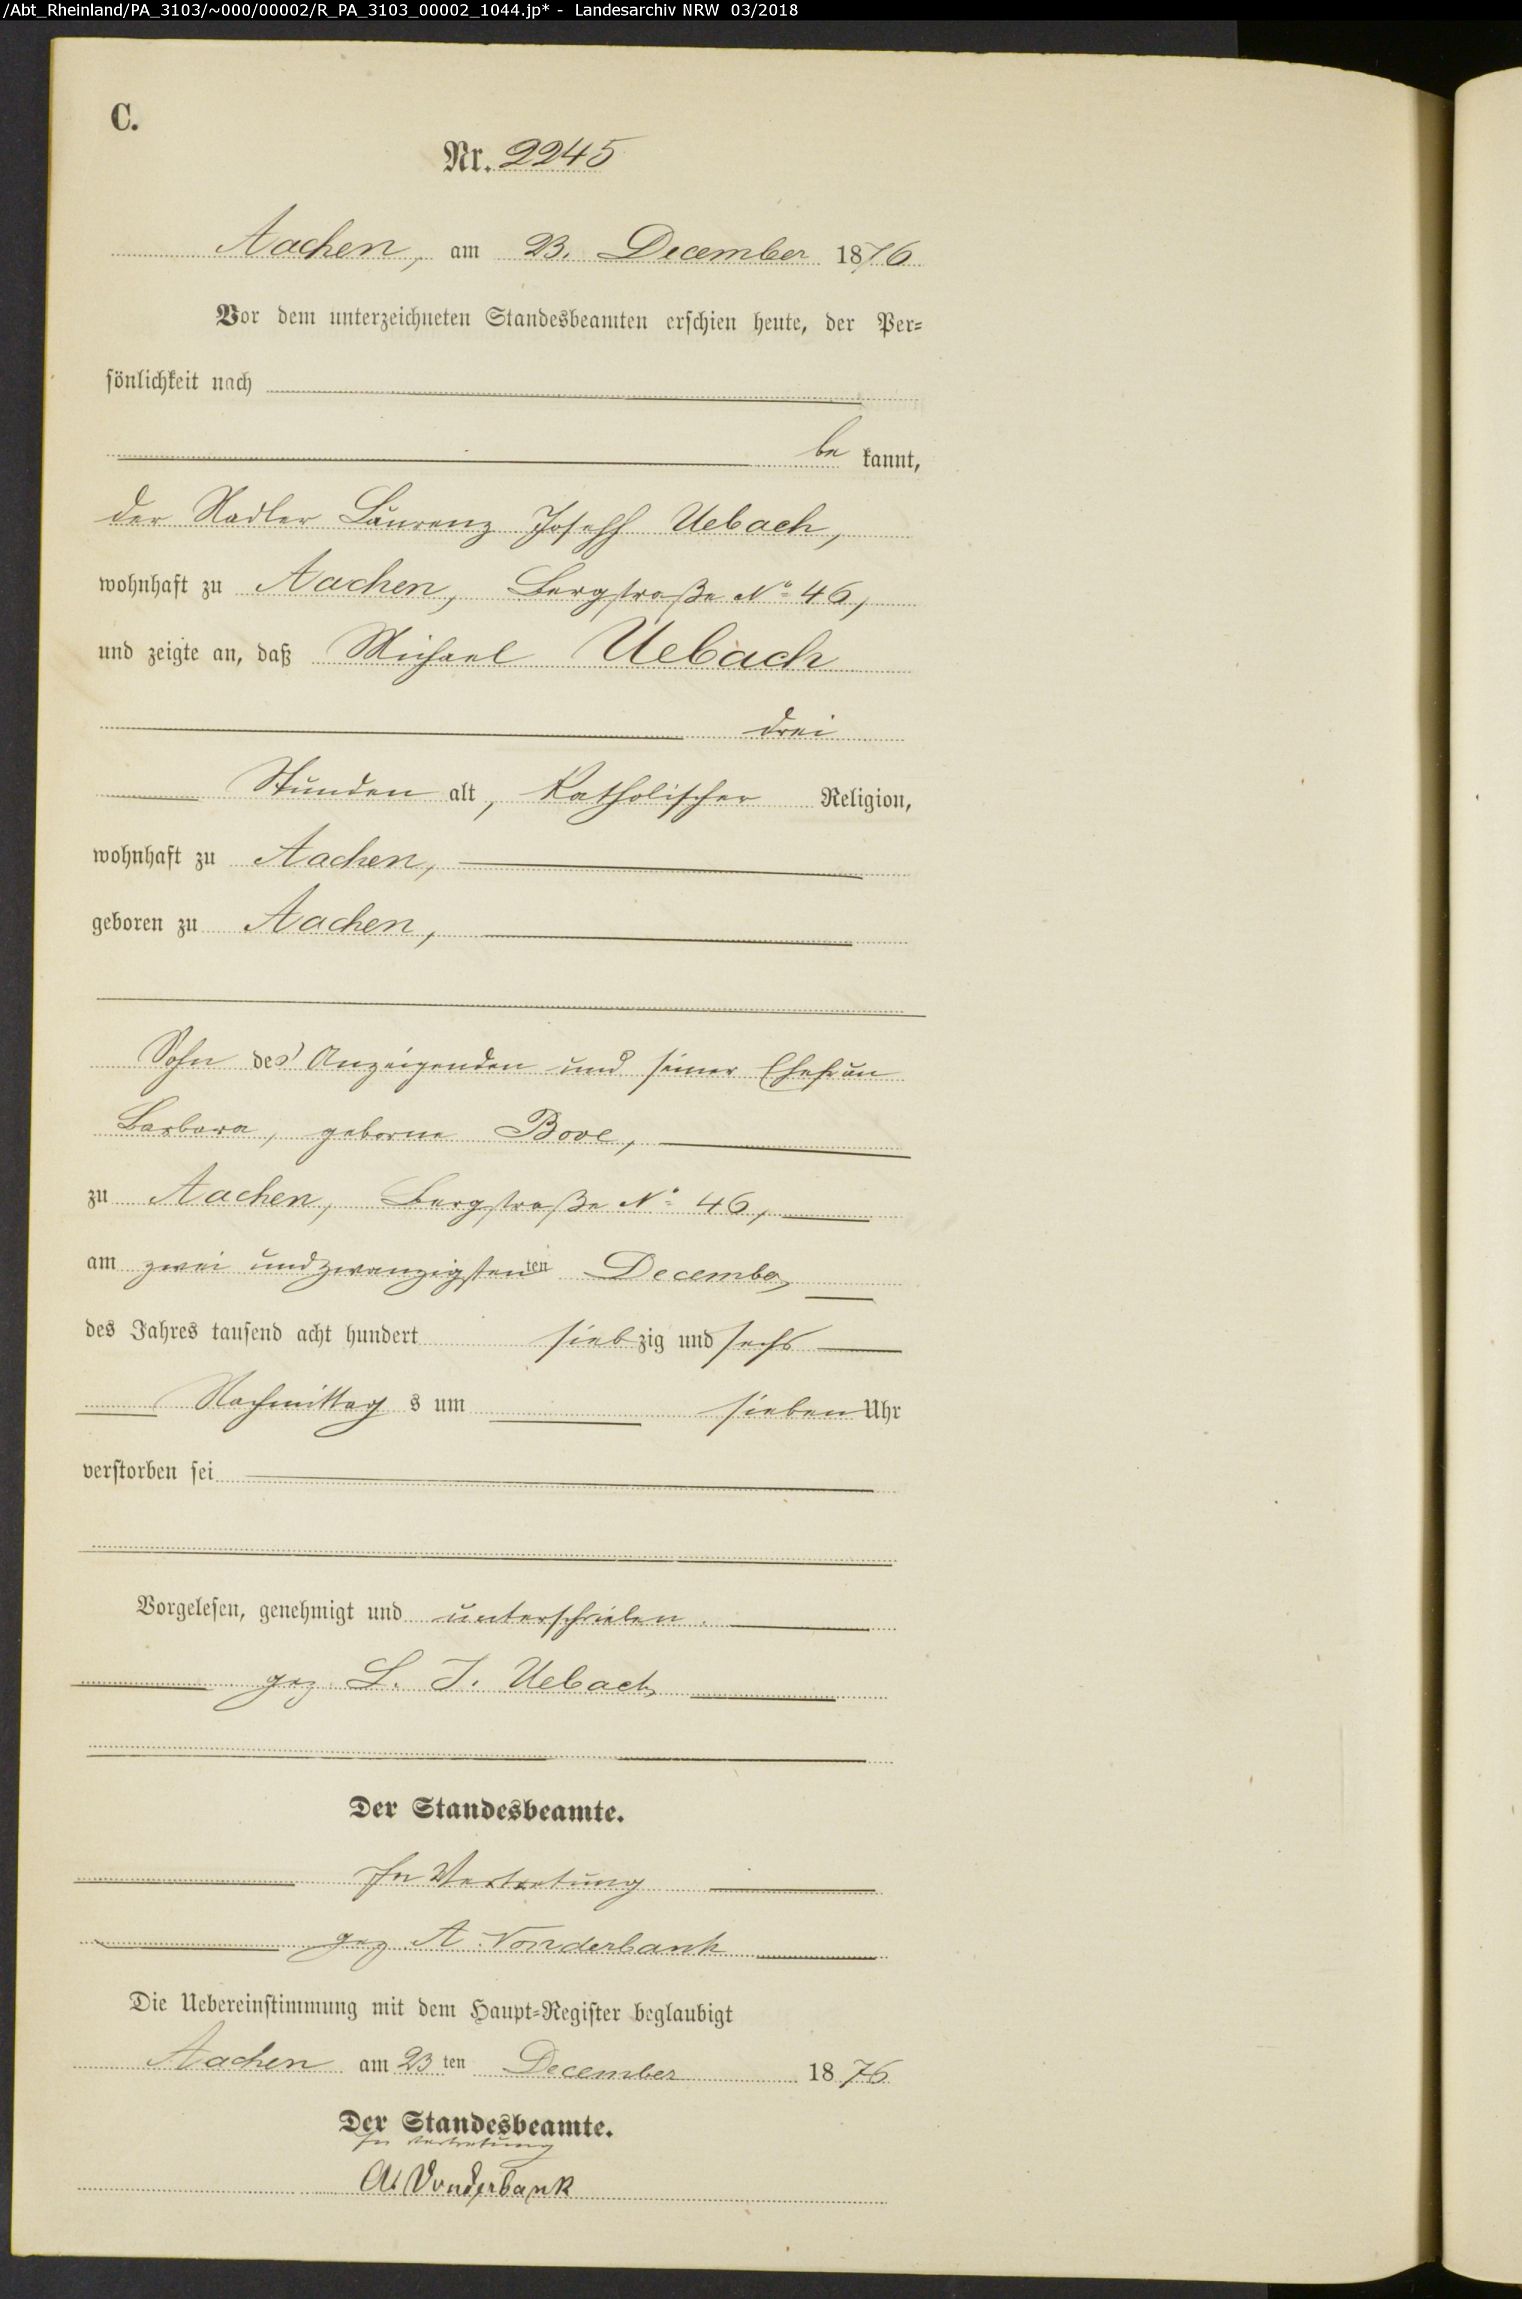 /Abt_Rheinland/PA_3103/~000/00002/R_PA_3103_00002_1044.jp* - Landesarchiv NRW 03/2018
C.
Nr. 2245
Aachen, am 23. December 1876
Vor dem unterzeichneten Standesbeamten erschien heute, der Per=
sönlichkeit nach
be kannt,
der Nadler Laurenz Joseph Uebach,
wohnhaft zu Aachen, Bergstraße No 46,
und zeigte an, daß Michael Uebach
drei
Stunden alt, katholischer Religion,
wohnhaft zu Aachen,
geboren zu Aachen,
Sohn des Anzeigenden und seiner Ehefrau
Barbara, geborne Bove,
zu Aachen, Bergstraße No 46,
am zwei und zwanzigsten ten December
des Jahres tausend acht hundert siebzig und sechs
Nachmittags um sieben Uhr
verstorben sei
Vorgelesen, genehmigt und unterschrieben.
gez. L. J. Uebach
Der Standesbeamte.
In Vertretung
gez A. Vonderbank
Die Uebereinstimmung mit dem Haupt=Register beglaubigt
Aachen am 23ten December 1876
Der Standesbeamte.
In Vertretung
A. Vonderbank